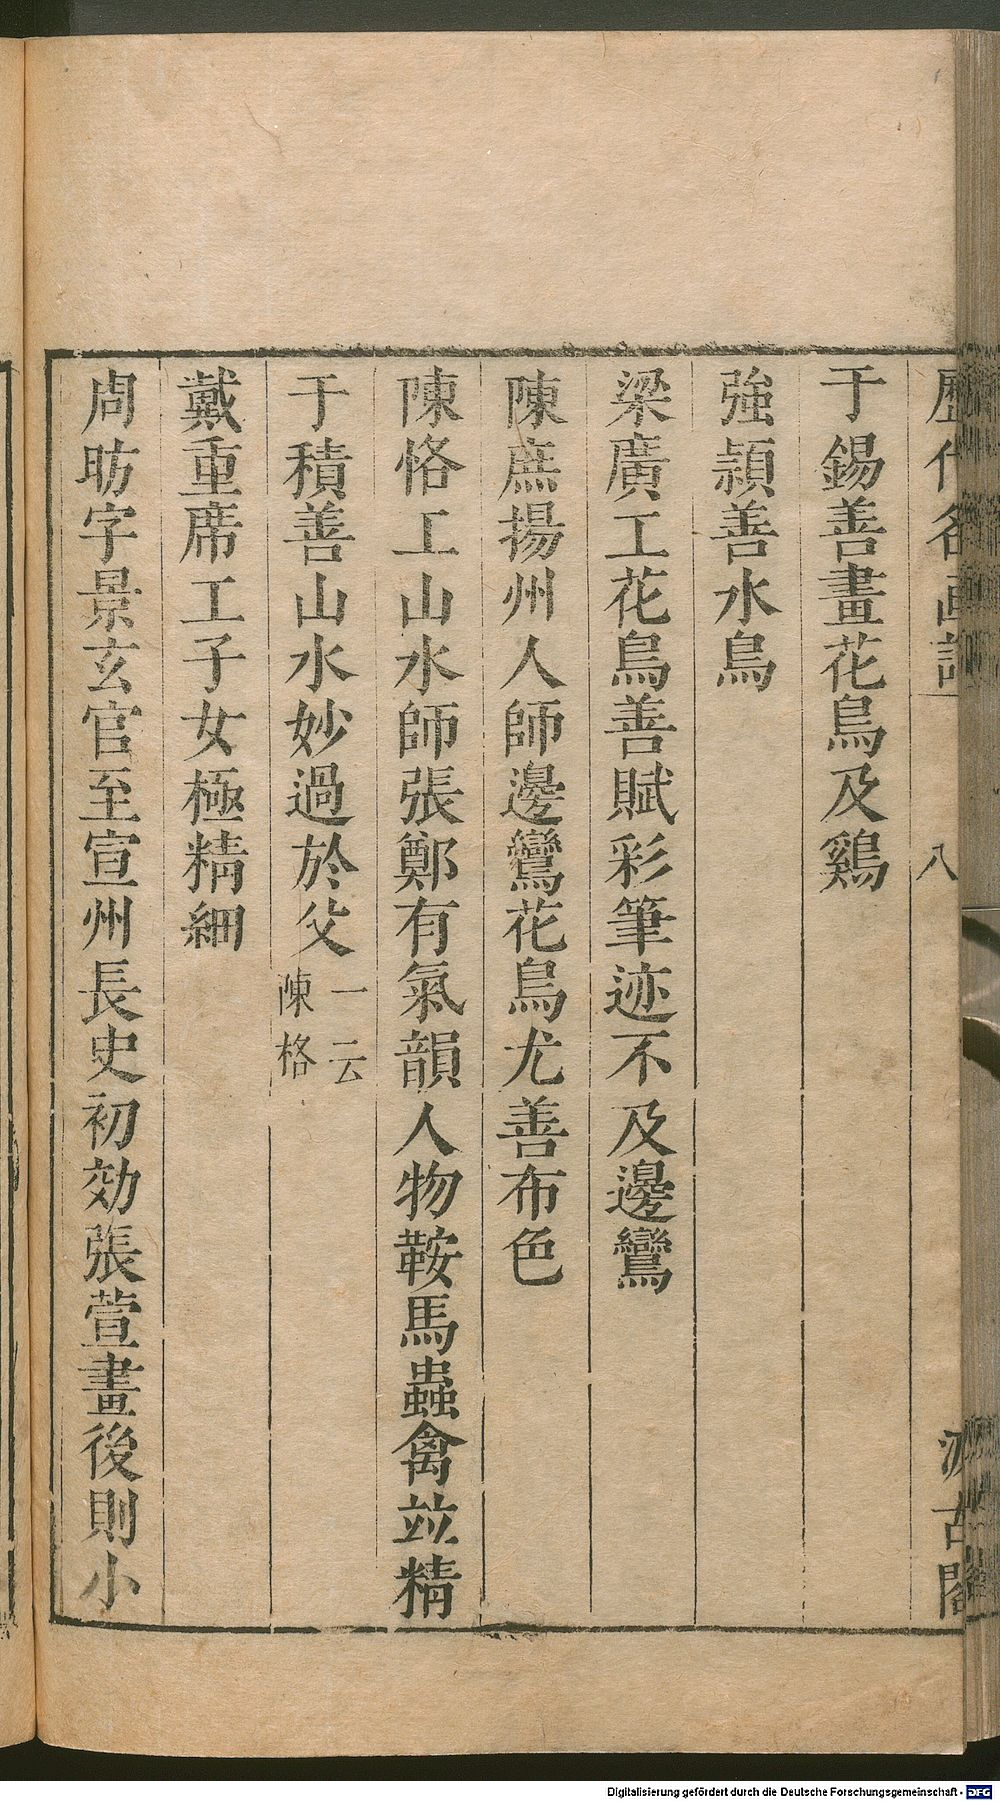 歷代名画記 八 汲古閣
于錫善畫花鳥及鷄
強頴善水鳥
梁廣工花鳥善賦彩筆迹不及邊鸞
陳庶揚州人師邊鸞花鳥尤善布色
陳恪工山水師張鄭有氣韻人物鞍馬蟲禽竝精
于積善山水妙過於父一云陳格
戴重席工子女極精細
周昉字景玄官至宣州長史初効張萱畫後則小
Digitalisierung gefördert durch die Deutsche Forschungsgemeinschaft - DFG